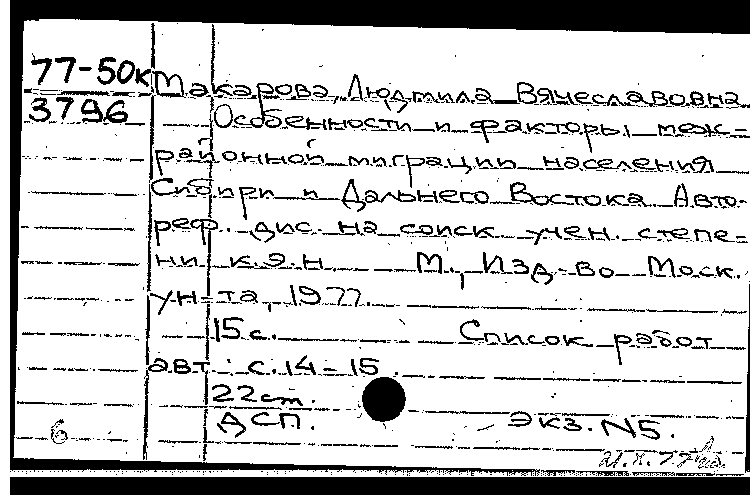 77-50к Макарова, Людмила Вячеславовна
3796 Особенности и факторы меж-
районной миграции населения
Сибири и Дальнего Востока Авто-
реф. дис. на соиск учен. степе-
ни к.э.н М., Изд-во Моск.
ун-та, 1977.
15 с. Список работ
авт.: с. 14-15.
22 ст.
ДСП. Экз. N5.
6
21.X.77